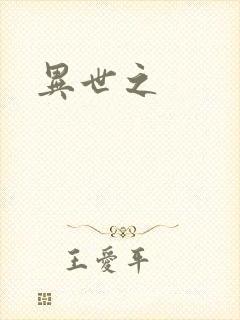 異世之
王愛平